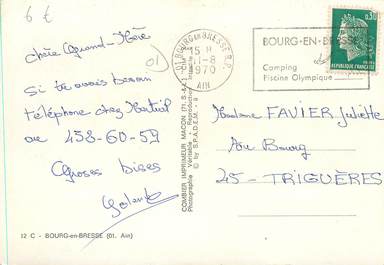 6 €
01
chère Grand-Mère
si tu avais besoin
téléphone chez
au 438-60-59
Grosses bises
Yolande
12 C - BOURG-en-BRESSE (01. Ain)
COMBIER IMPRIMEUR MACON (71. S.-&-L.)
Photographie Véritable - Reproduction Interdite
© by S.P.A.D.E.M.
01 BOURG EN BRESSE R.P.
15 H
11-8
1970
AIN
BOURG-EN-BRESSE
Camping
Piscine Olympique
0,30
REPUBLIQUE FRANÇAISE
Madame FAVIER Juliette
Au Bourg
45 - TRIGUÈRES